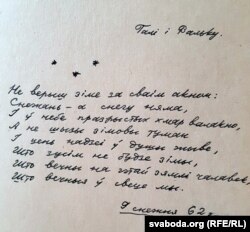 Галі і Вальку.
* * *
Не верыш зіме за сваім акном:
Снежань – а снегу няма,
І ў небе празрыстых хмар валакно,
А не шызы зімовы туман
І цень надзеі ў душы жыве,
Што зусім не будзе зімы,
Што вечны на гэтай зямлі чалавек,
Што вечныя ў свеце мы.
9 снежня 62 г.
svaboda.org (RFE/RL)